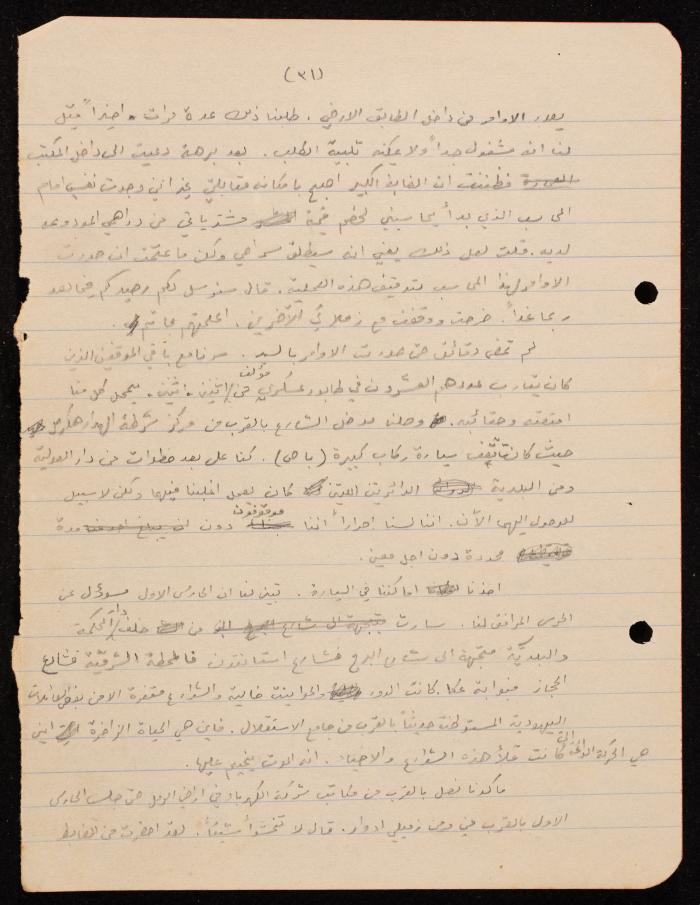 (٣١)
يصدر الاوامر من داخل الطابق الارضي . طلبنا ذلك عدة مرات . واخيراً قيل
لنا انه مشغول جداً ولا يمكنه تلبية الطلب . بعد برهة دعيت الى داخل المكتب
فظننت ان الضابط الكبير اصبح بامكانه مقابلتي غير اني وجدت نفسي امام
المحاسب الذي بدأ يحاسبني لخصم قيمة مشترياتي من دراهمي المودوعة
لديه . قلت لعل ذلك يعني انه سيطلق سراحي ولكن ما عتمت ان صدرت
الاوامر لهذا المحاسب بتوقيف هذه العملية . قال سنرسل لكم رصيدكم فيما بعد
ربما غداً . خرجت ووقفت مع زملائي الآخرين . اعلمتهم بما تم .
لم تمض دقائق حتى صدرت الاوامر بالسير . سرنا مع باقي الموقوفين الذين
كان يقارب عددهم العشرون في طابور عسكري مؤلف من اثنين . اثنين . يحمل كل منا
امتعته وحقائبه . وصلنا مدخل الشارع بالقرب من مركز شرطة الهدار هكرمل
حيث كانت تقف سيارة ركاب كبيرة (باص) . كنا على بعد خطوات من دار العدلية
ومن البلدية الدائرتين اللتين كان يعمل اغلبنا فيهما ولكن لا سبيل
للوصول اليهما الآن . اننا لسنا احراراً اننا موقوفون دون مدة
محددة دون اجل معين .
اخذنا اماكننا في السيارة . تبين لنا ان الحارس الاول مسؤول عن
الحرس المرافق لنا . سارت من خلف دار المحكمة
والبلدية متجهة الى شارع البرج فشارع استانتون فالمحطة الشرقية فشارع
الحجاز فبوابة عكا . كانت الدور والحوانيت خالية والشوارع مقفرة الا من بعض العائلات
اليهودية المستوطنة حديثاً بالقرب من جامع الاستقلال . فاين هي الحياة الزاخرة اين
هي الحركة الدائمة التي كانت تملأ هذه الشوارع والاحياء . انه الموت يخيم عليها .
ما كدنا نصل بالقرب من مكاتب شركة الكهرباء في اراضي الرمل حتى جلس الحارس
الاول بالقرب مني ومن زميلي ادوار . قال لا تخشوا شيئاً . لقد احضرت من الضابط